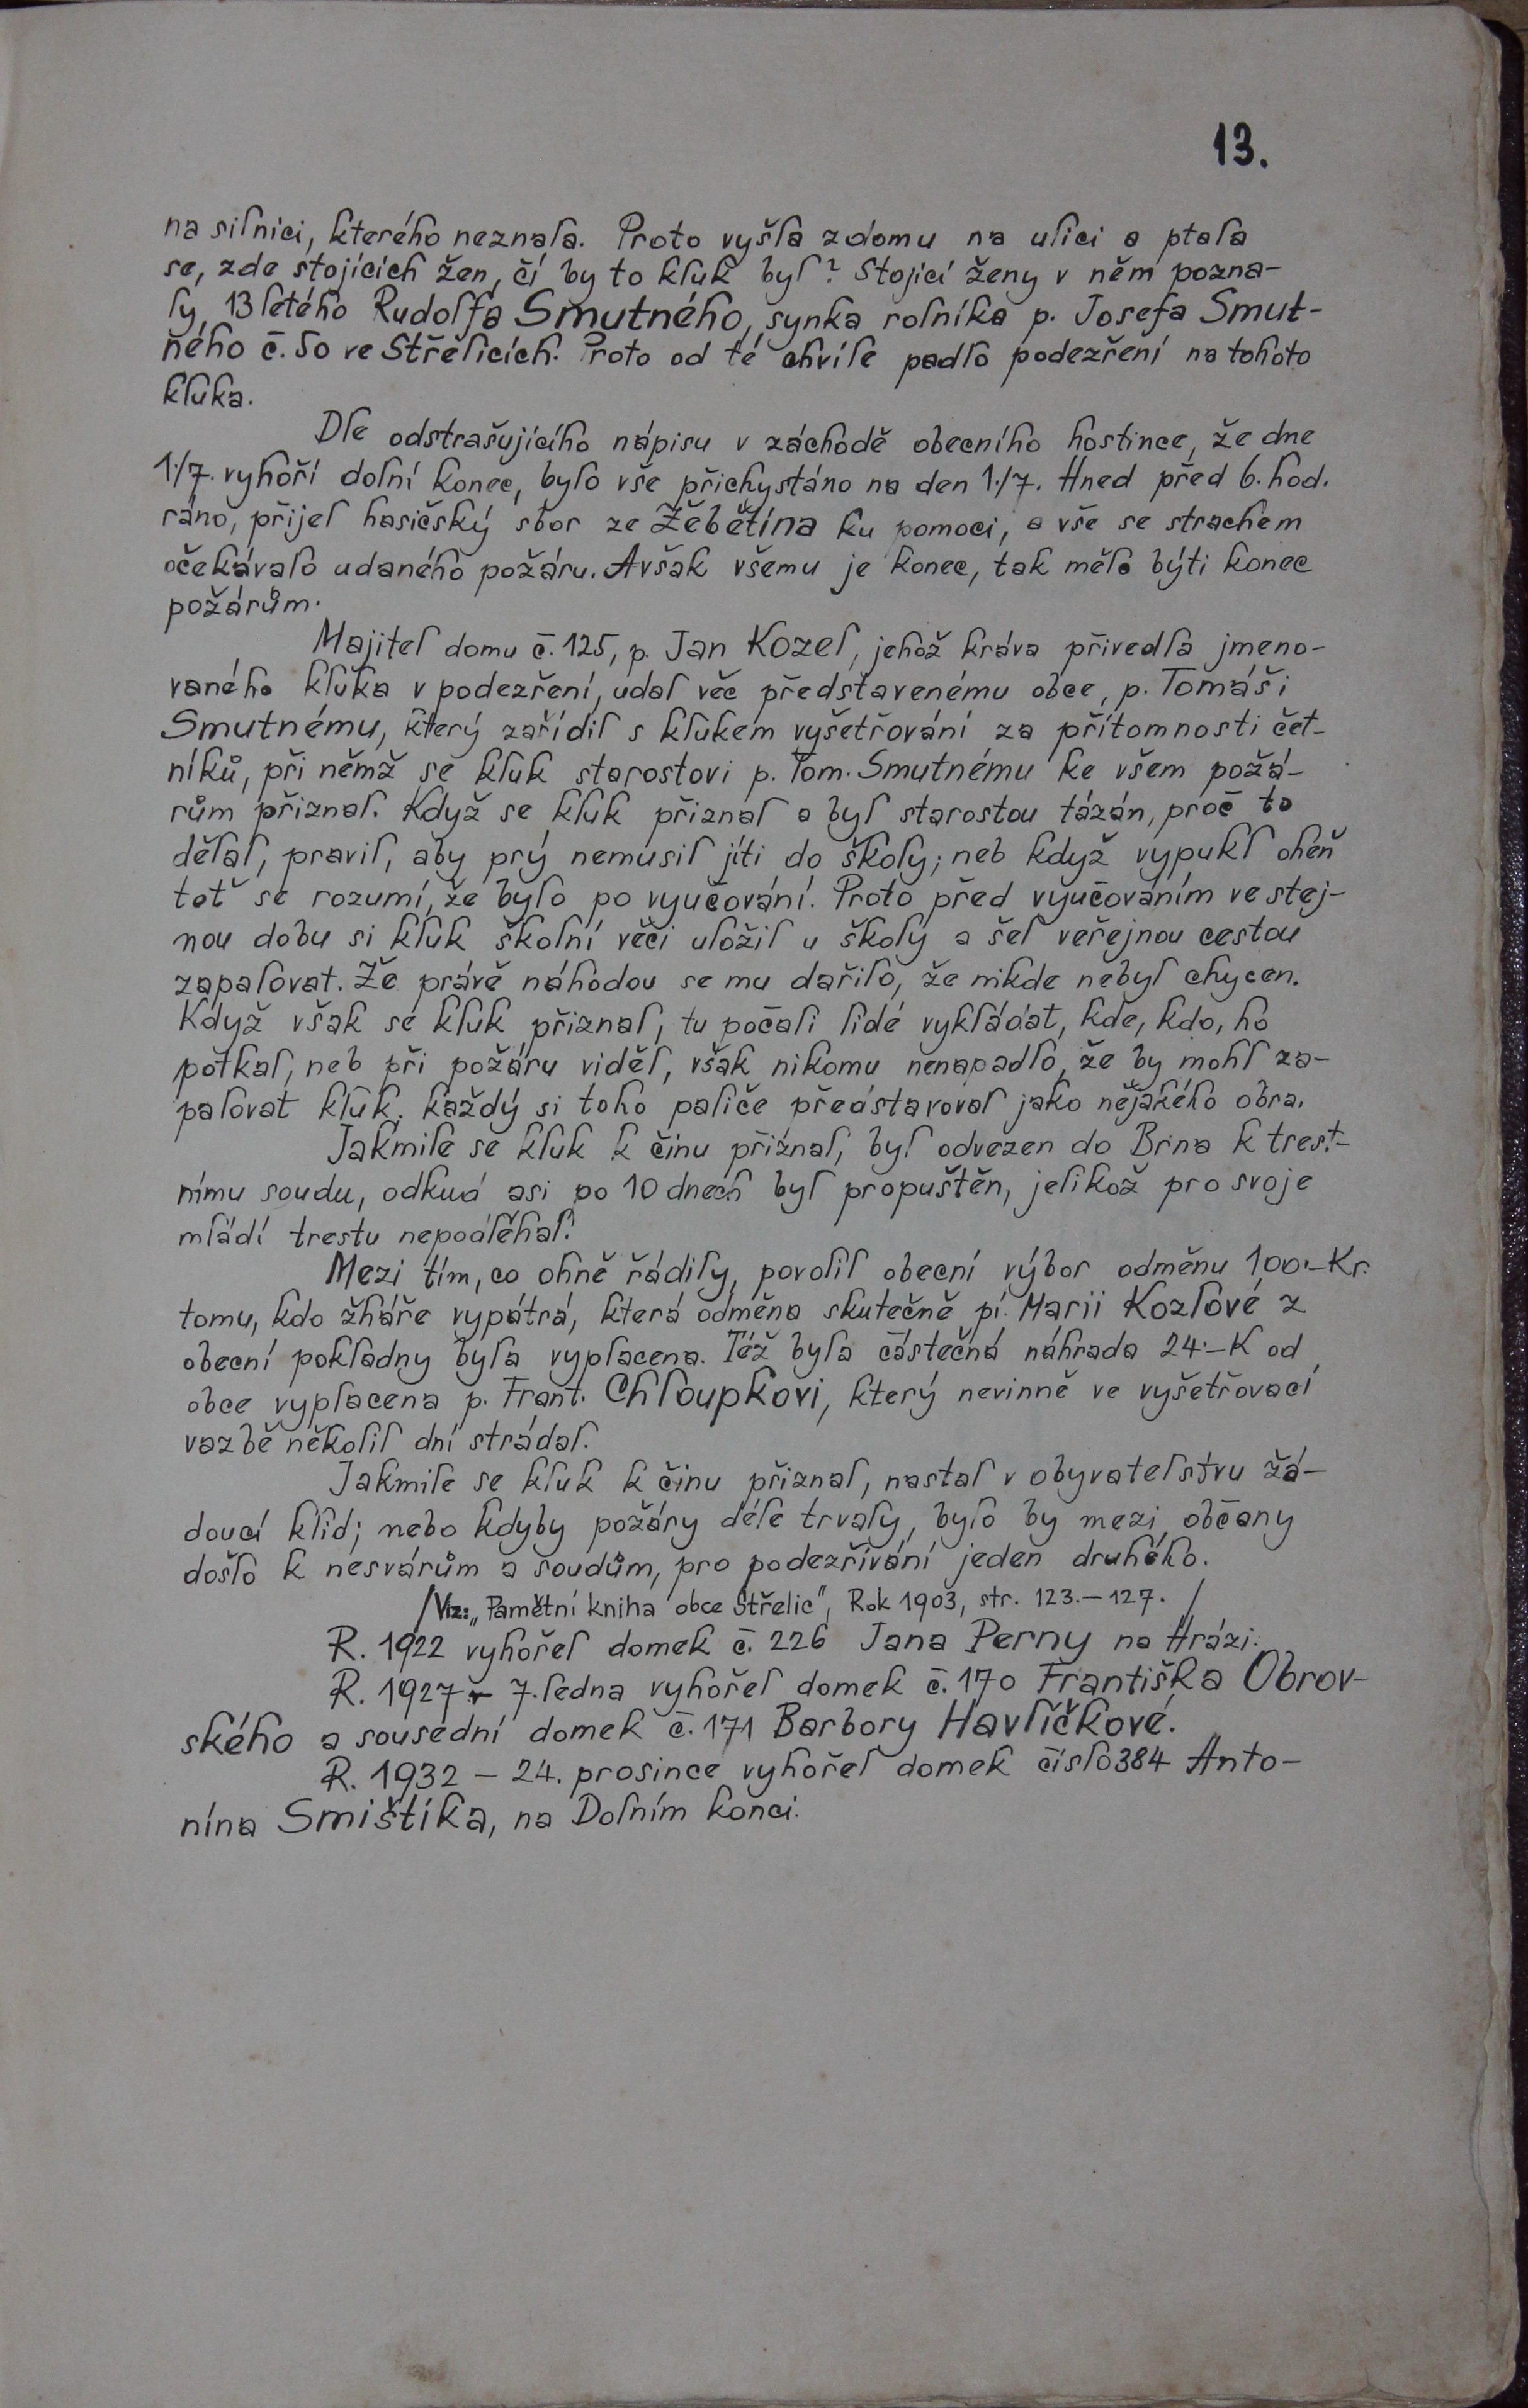 13.
na silnici, kterého neznala. Proto vyšla z domu na ulici a ptala
se, zde stojících žen, čí by to kluk byl? Stojící ženy v něm pozna-
ly 13letého Rudolfa Smutného, synka rolníka p. Josefa Smut-
ného č. 50 ve Střelicích. Proto od té chvíle padlo podezření na tohoto
kluka.
Dle odstrašujícího nápisu v záchodě obecního hostince, že dne
1./7. vyhoří dolní konec, bylo vše přichystáno na den 1./7. Hned před 6. hod.
ráno, přijel hasičský sbor ze Žebětína ku pomoci, a vše se strachem
očekávalo udaného požáru. Avšak všemu je konec, tak mělo býti konec
požárům.
Majitel domu č. 125, p. Jan Kozel, jehož kráva přivedla jmeno-
vaného kluka v podezření, udal věc představenému obce, p. Tomáši
Smutnému, který zařídil s klukem vyšetřování za přítomnosti čet-
níků, při němž se kluk starostovi p. Tom. Smutnému ke všem požá-
rům přiznal. Když se kluk přiznal a byl starostou tázán, proč to
dělal, pravil, aby prý nemusil jíti do školy; neb když vypukl oheň
toť se rozumí, že bylo po vyučování. Proto před vyučováním ve stej-
nou dobu si kluk školní věci uložil u školy a šel veřejnou cestou
zapalovat. Že právě náhodou se mu dařilo, že nikde nebyl chycen.
Když však se kluk přiznal, tu počali lidé vykládat, kde, kdo, ho
potkal, neb při požáru viděl, však nikomu nenapadlo, že by mohl za-
palovat kluk, každý si toho paliče představoval jako nějakého obra.
Jakmile se kluk k činu přiznal, byl odvezen do Brna k trest-
nímu soudu, odkud asi po 10 dnech byl propuštěn, jelikož pro svoje
mládí trestu nepodléhal.
Mezi tím, co ohně řádily, povolil obecní výbor odměnu 100.-Kr.
tomu, kdo žháře vypátrá, která odměna skutečně pí. Marii Kozlové z
obecní pokladny byla vyplacena. Též byla částečná náhrada 24.-K od
obce vyplacena p. Frant. Chloupkovi, který nevinně ve vyšetřovací
vazbě několil dní strádal.
Jakmile se kluk k činu přiznal, nastal v obyvatelstvu žá-
doucí klid; nebo kdyby požáry déle trvaly, bylo by mezi občany
došlo k nesvárům a soudům, pro podezřívání jeden druhého.
/Viz: „Pamětní kniha obce Střelic", Rok 1903, str. 123.-127. /
R. 1922 vyhořel domek č. 226 Jana Perny na Hrázi.
R. 1927 - 7. ledna vyhořel domek č. 170 Františka Obrov-
ského a sousední domek č. 171 Barbory Havlíčkové.
R. 1932 - 24. prosince vyhořel domek číslo 384 Anto-
nína Smištíka, na Dolním konci.